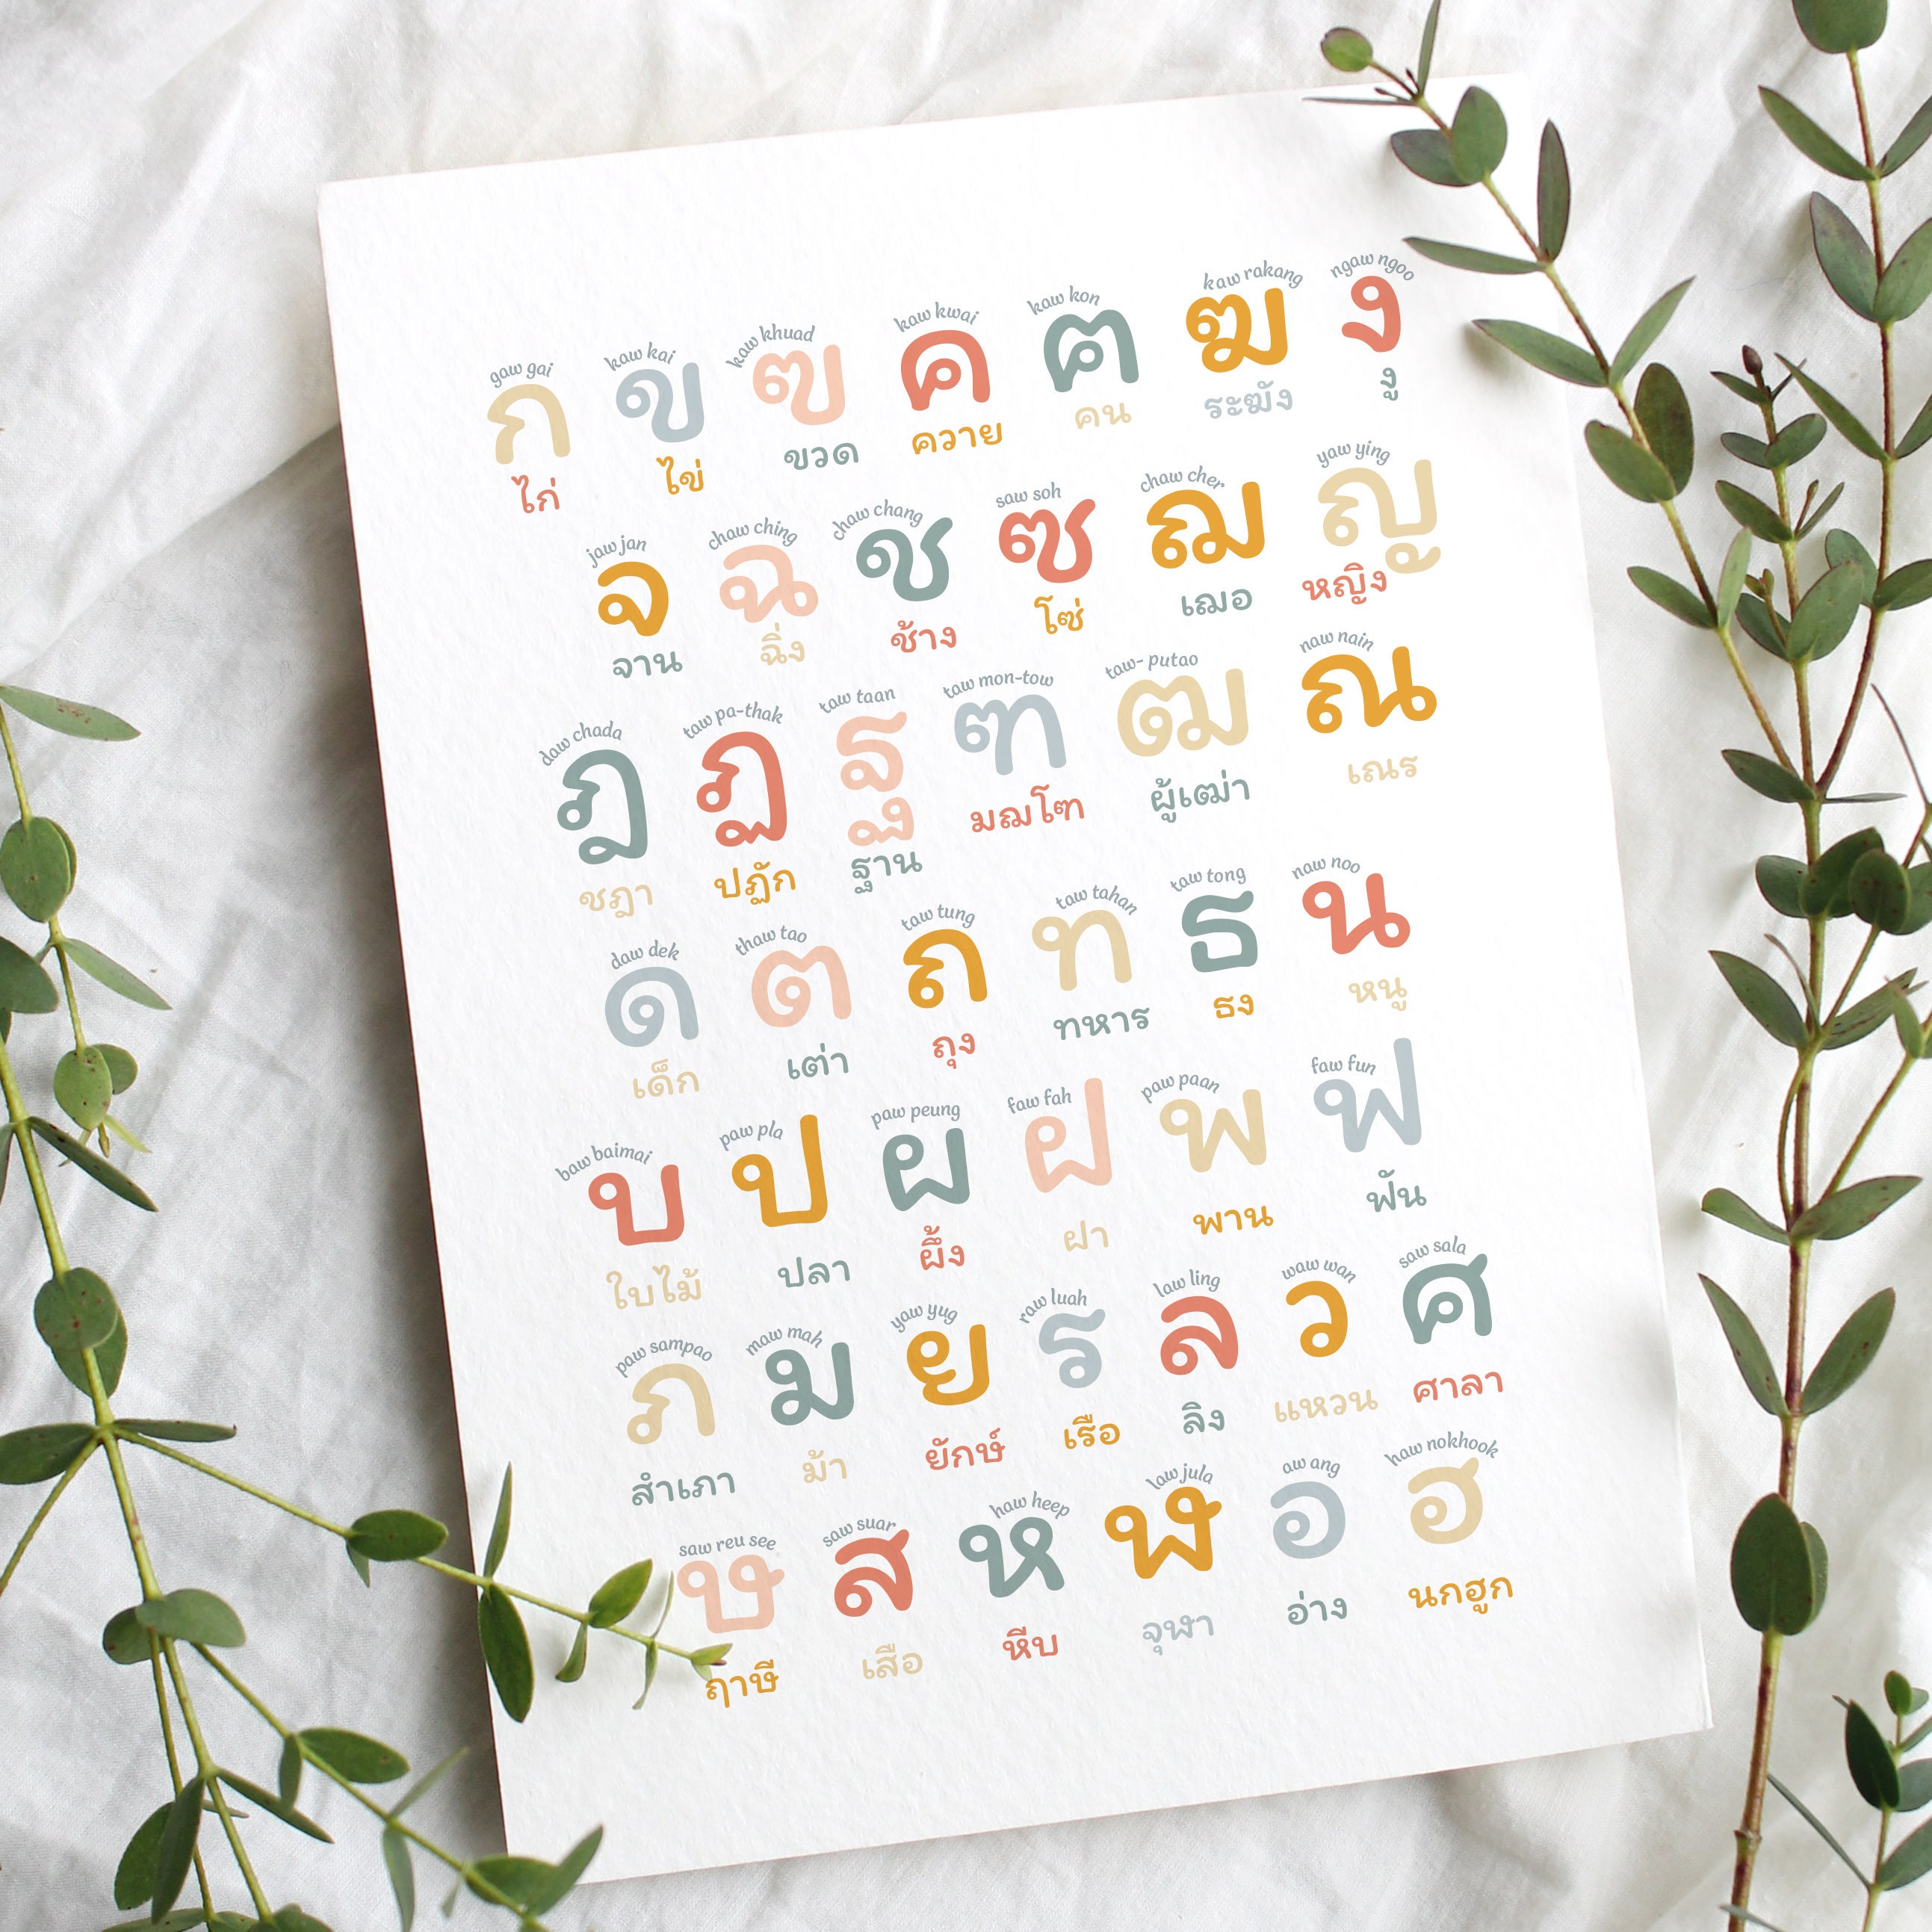 gaw gai kaw kai kaw khuad kaw kwai kaw kon kaw rakang ngaw ngoo
ก ข ฃ ค ฅ ฆ ง
ไก่ ไข่ ขวด ควาย คน ระฆัง งู
jaw jan chaw ching chaw chang saw soh chaw cher yaw ying
จ ฉ ช ซ ฌ ญ
จาน ฉิ่ง ช้าง โซ่ เฌอ หญิง
daw chada taw pa-thak taw taan taw mon-tow taw- putao naw nain
ฎ ฏ ฐ ฑ ฒ ณ
ชฎา ปฏัก ฐาน มฌโฑ ผู้เฒ่า เณร
daw dek thaw tao taw tung taw tahan taw tong naw noo
ด ต ถ ท ธ น
เด็ก เต่า ถุง ทหาร ธง หนู
baw baimai paw pla paw peung faw fah paw paan faw fun
บ ป ผ ฝ พ ฟ
ใบไม้ ปลา ผึ้ง ฝา พาน ฟัน
paw sampao maw mah yaw yug raw luah law ling waw wan saw sala
ภ ม ย ร ล ว ศ
สำเภา ม้า ยักษ์ เรือ ลิง แหวน ศาลา
saw reu see saw suar haw heep law jula aw ang haw nokhook
ษ ส ห ฬ อ ฮ
ฤาษี เสือ หีบ จุฬา อ่าง นกฮูก